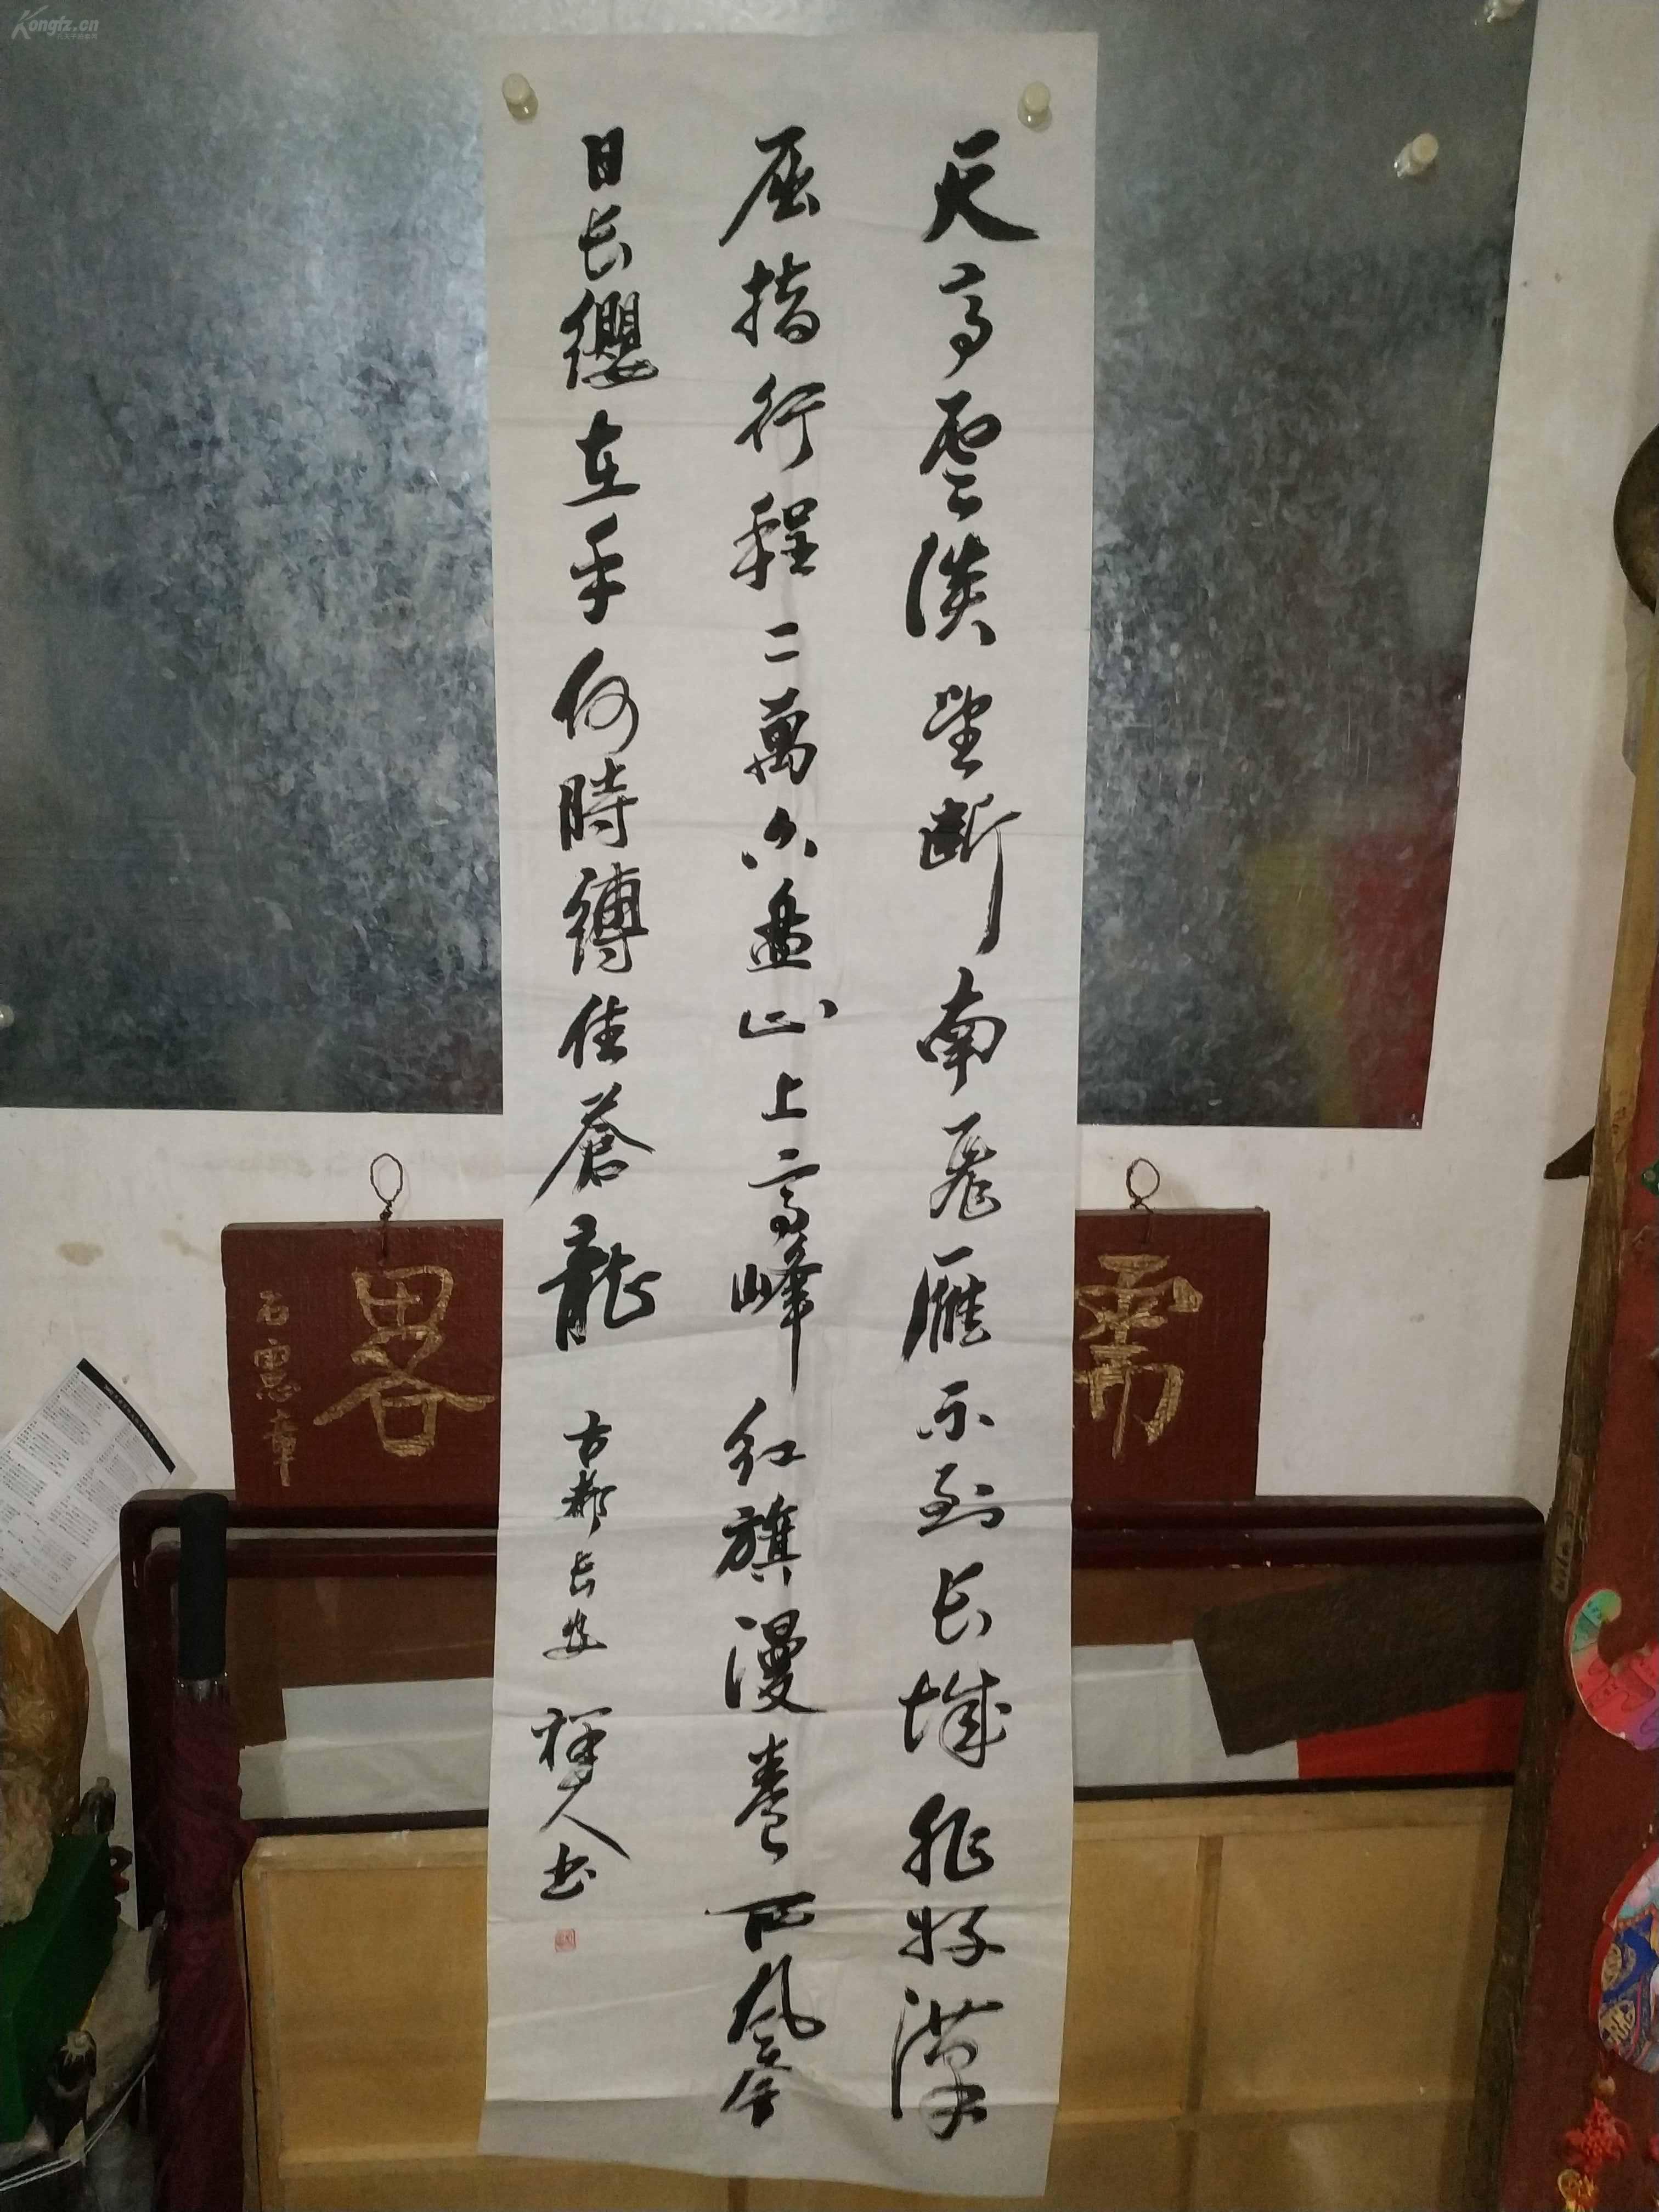 天高雲淡望斷南飛雁不到长城非好漢
屈指行程二萬六盤山上高峰红旗漫卷西风今
日长纓在手何時縛住蒼龍
古都长安 禪人书
需
畧
石憲章
Kongfz.cn